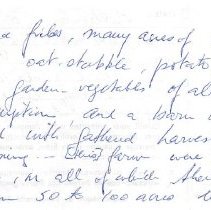 fribes, many acres of
oat stubble, potato
garden vegetables of al
ription, and a barn
d with gathered harves
ning. farm were
, in all of which ther
m 50 to 100 acres